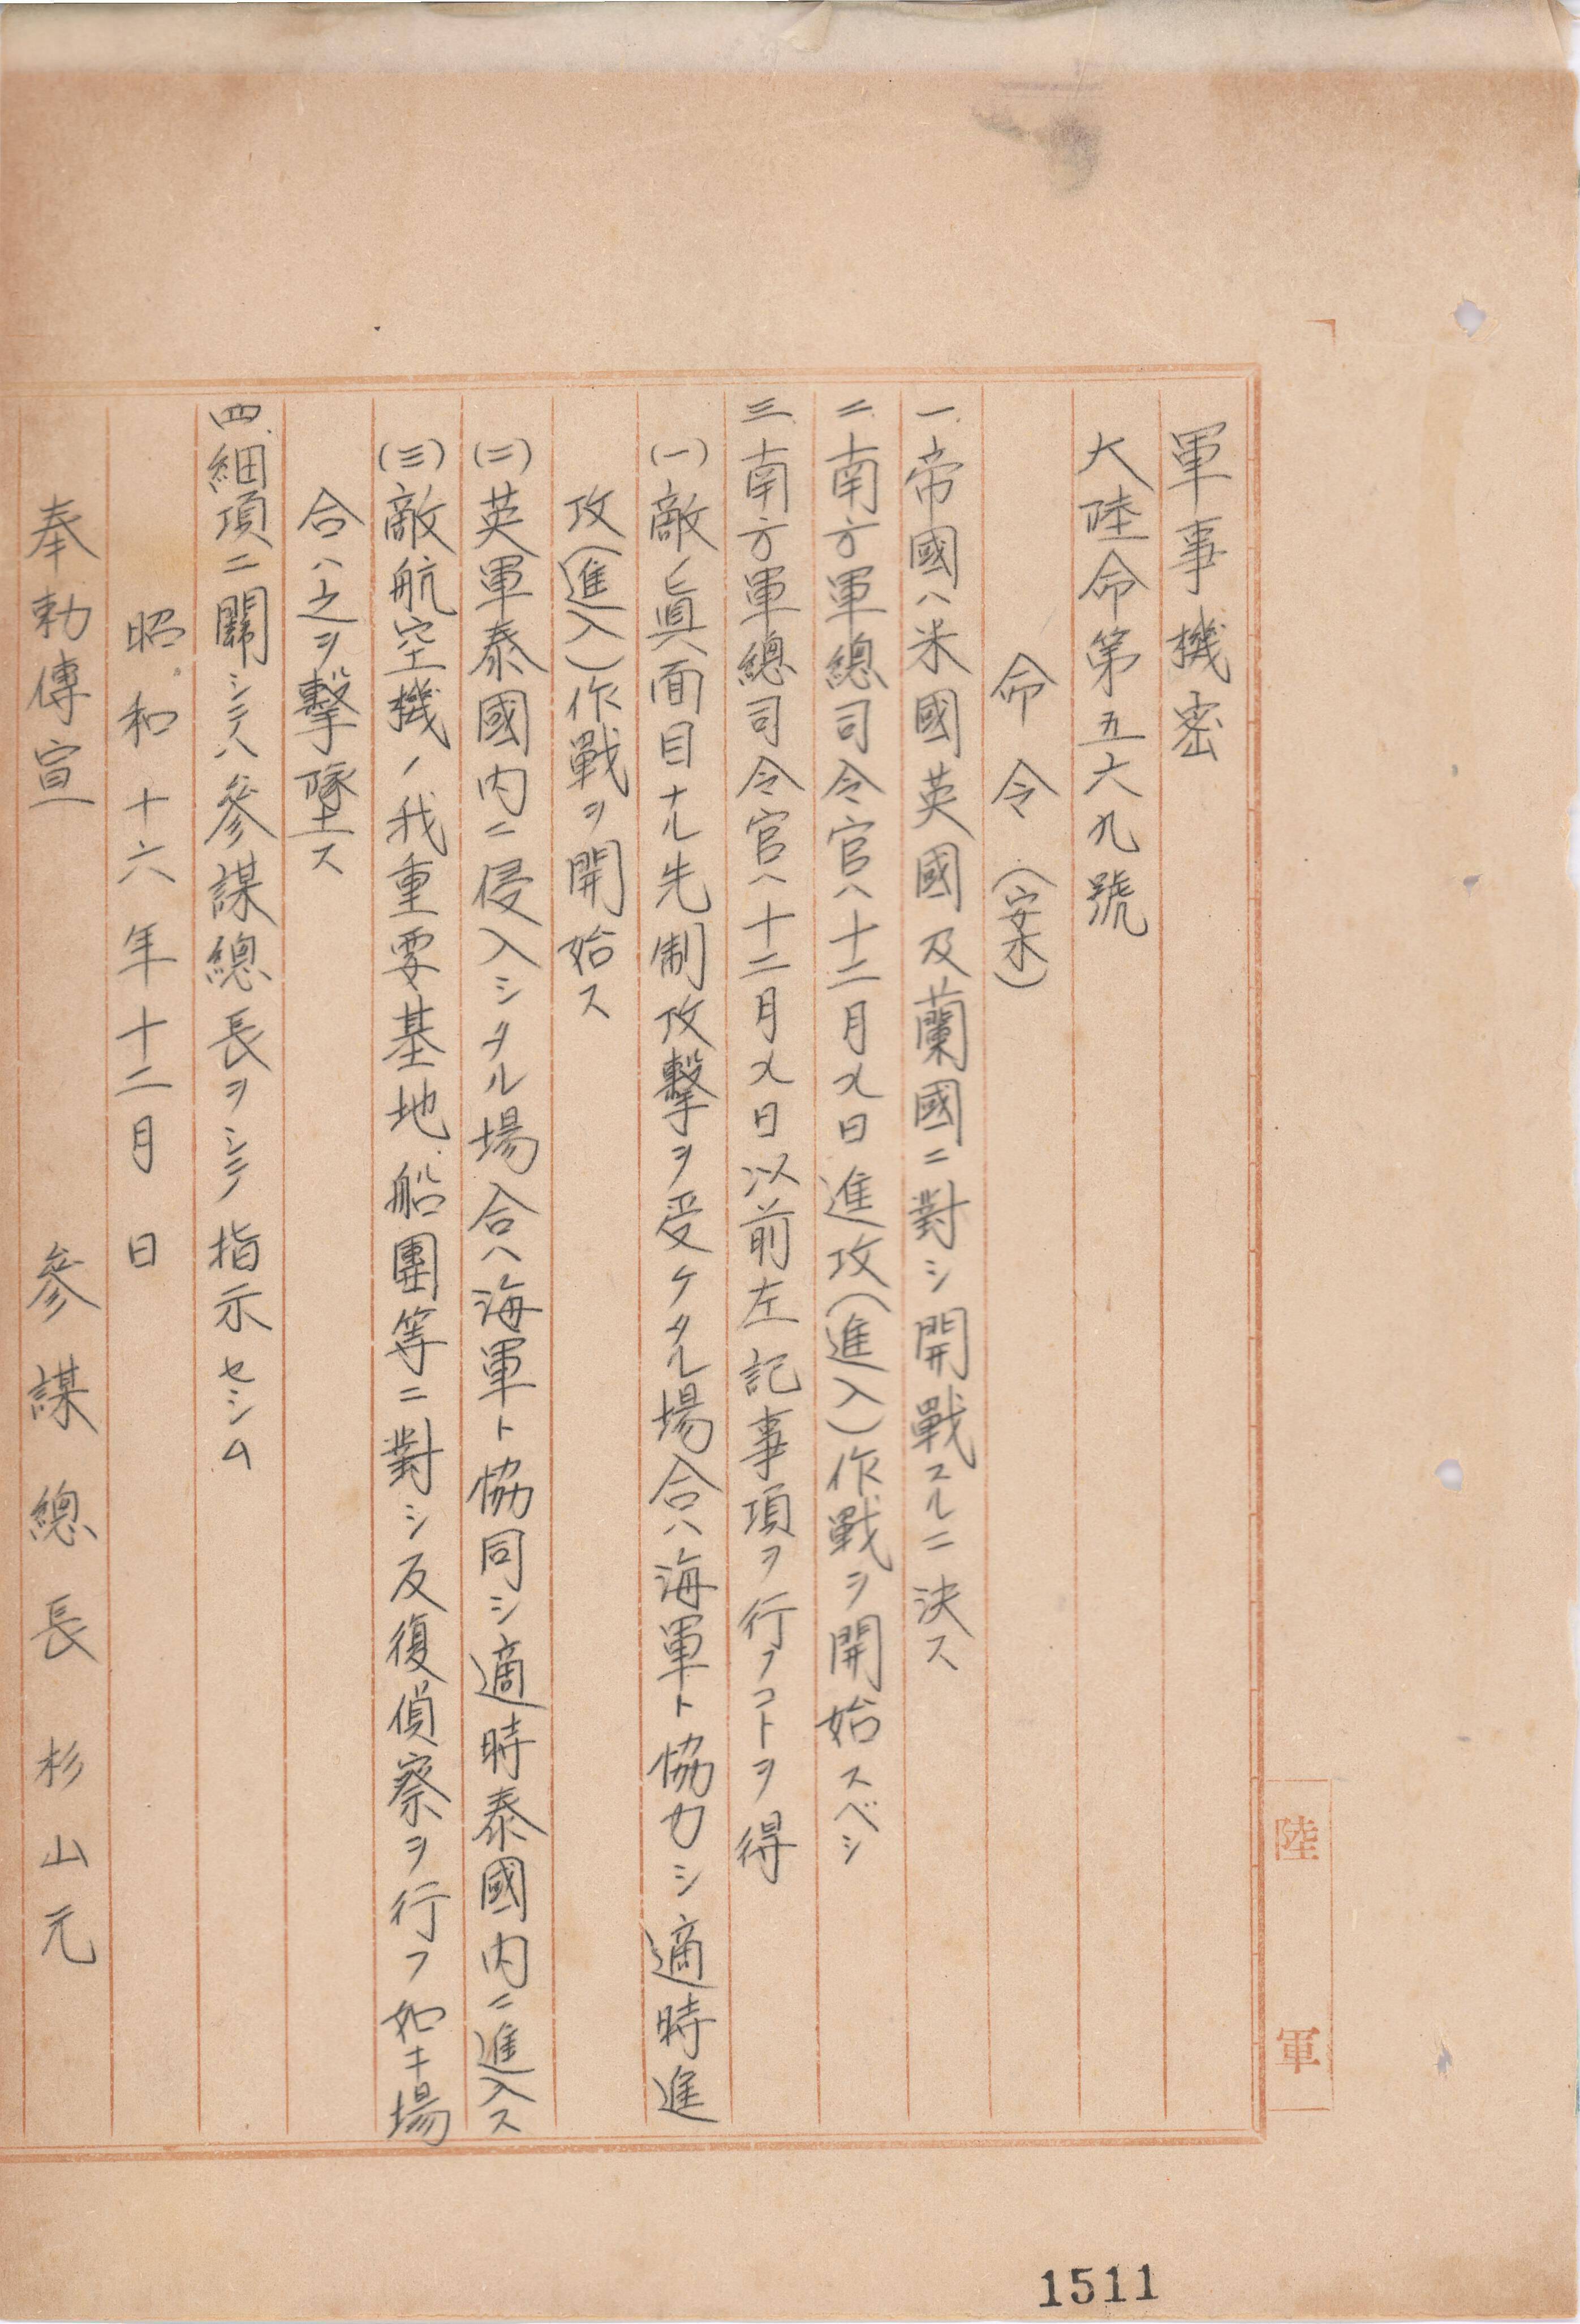 軍事機密
大陸命第五六九號
命令（案）
一、帝國ハ米國英國及蘭國ニ對シ開戰スルニ決ス
二、南方軍總司令官ハ十二月メ日進攻（進入）作戰ヲ開始スベシ
三、南方軍總司令官ハ十二月メ日以前左記事項ヲ行フコトヲ得
（一）敵ノ眞面目ナル先制攻擊ヲ受ケタル場合ハ海軍ト協力シ適時進
攻（進入）作戰ヲ開始ス
（二）英軍泰國内ニ侵入シタル場合ハ海軍ト協同シ適時泰國内ニ進入ス
（三）敵航空機ノ我重要基地、船團等ニ對シ反復偵察ヲ行フ如キ場
合ハ之ヲ擊墜ス
四、細項ニ關シテハ參謀總長ヲシテ指示セシム
昭和十六年十二月　日
奉勅傳宣　參謀總長杉山元
陸軍
1511